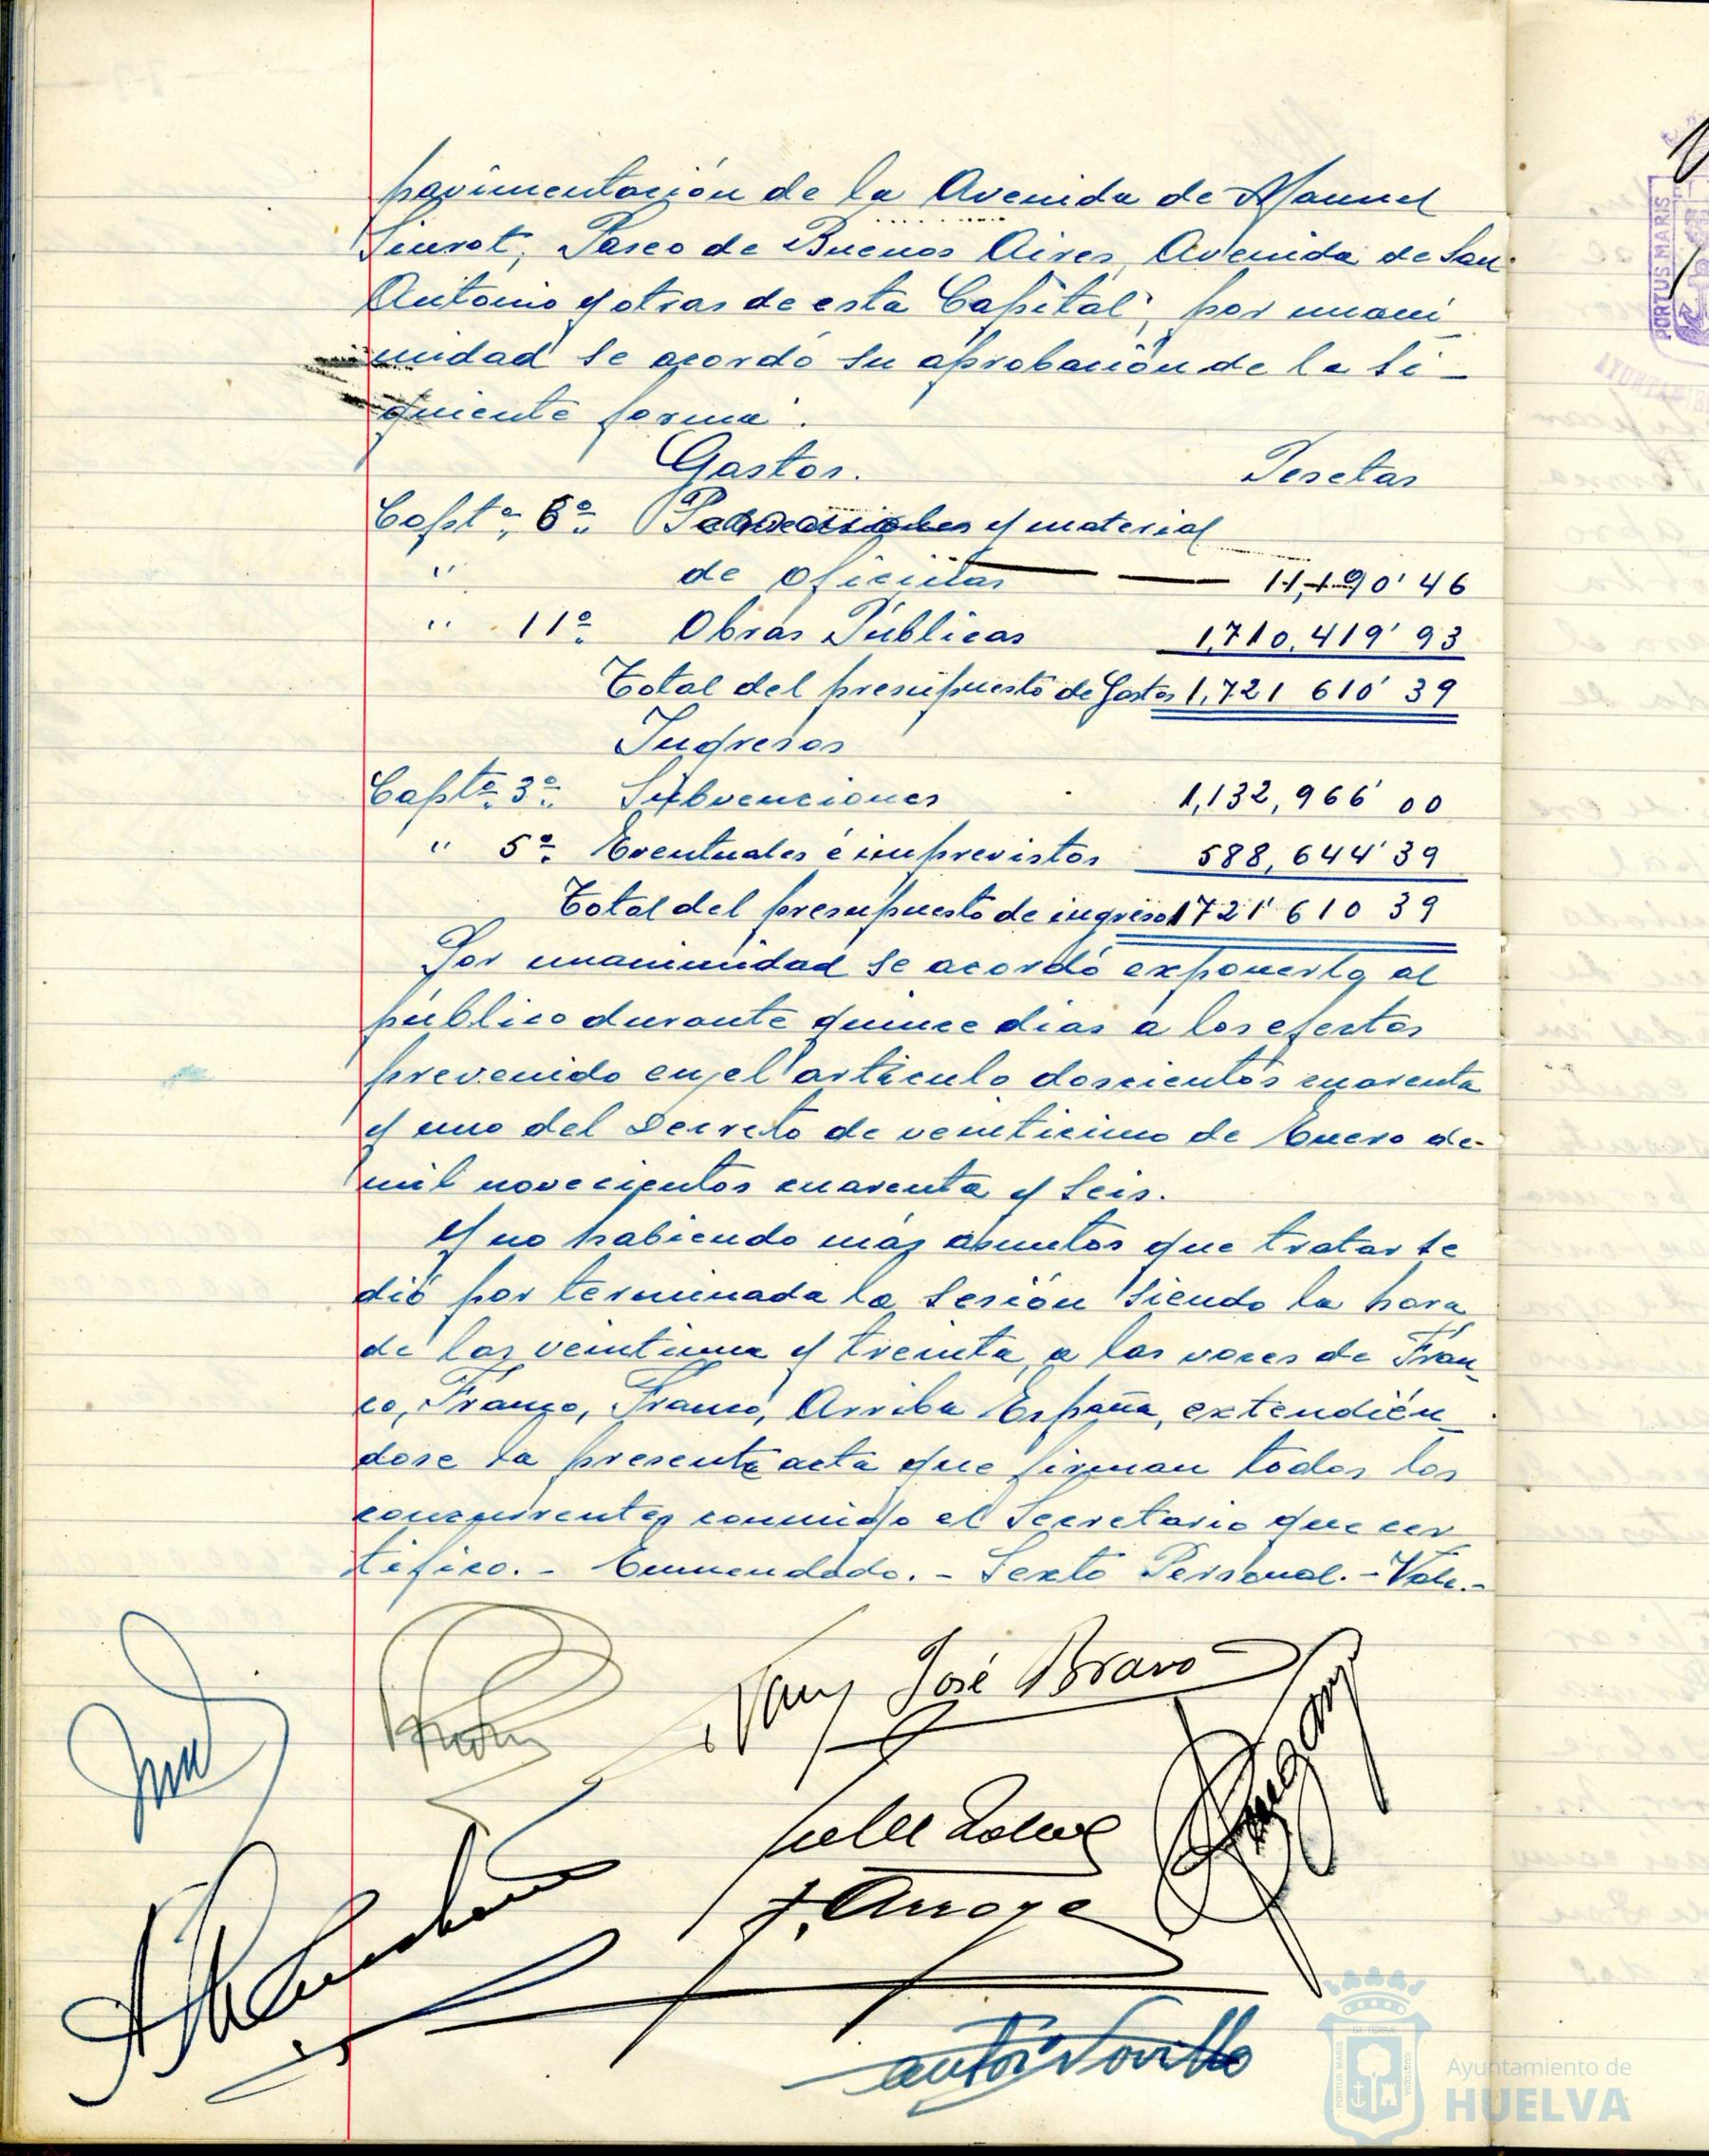 pavimentación de la Avenida de Manuel
Siurot, Paseo de Buenos Aires, Avenida de San
Antonio y otras de esta Capital, por unani
midad se acordó su aprobación de la si-
guiente forma:
Gastos. Pesetas
Captº. 6º. Personales y material
" de oficinas 11,190'46
" 11º Obras Públicas 1,710,419'93
Total del presupuesto de Gastos 1,721 610'39
Ingresos
Captº. 3º. Subvenciones 1,132,966'00
" 5º. Eventuales é imprevistos 588,644'39
Total del presupuesto de ingresos 1721'610 39
Por unanimidad se acordó exponerlo al
público durante quince dias a los efectos
prevenido en el artículo doscientos cuarenta
y uno del Decreto de veinticinco de Enero de
mil novecientos cuarenta y seis.
Y no habiendo más asuntos que tratar se
dió por terminada la sesión siendo la hora
de las veintiuna y treinta, a las voces de Fran
co, Franco, Franco, Arriba España, extendién
dose la presente acta que firman todos los
concurrentes conmigo el Secretario que cer
tifico. - Enmendado. - Sexto Personal. - Vale.-
José Bravo
F. Arroyo
Antº Novillo
PORTUS MARIS
Ayuntamiento de
HUELVA